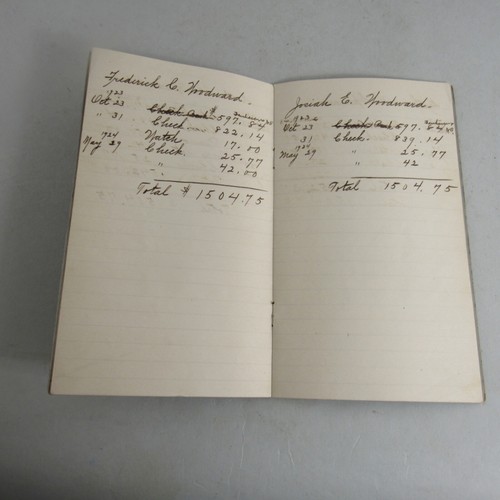 Frederick C. Woodward.
1923
Oct 23 Check and $597.84
" 31 Check 822.14
Watch 17.00
1924
May 29 Check 25.77
" 42.00
Total $1504.75
Josiah E. Woodward.
1923
Oct 23 Check and 597.84
31 Check 839.14
1924
May 29 " 25.77
" 42
Total 1504.75